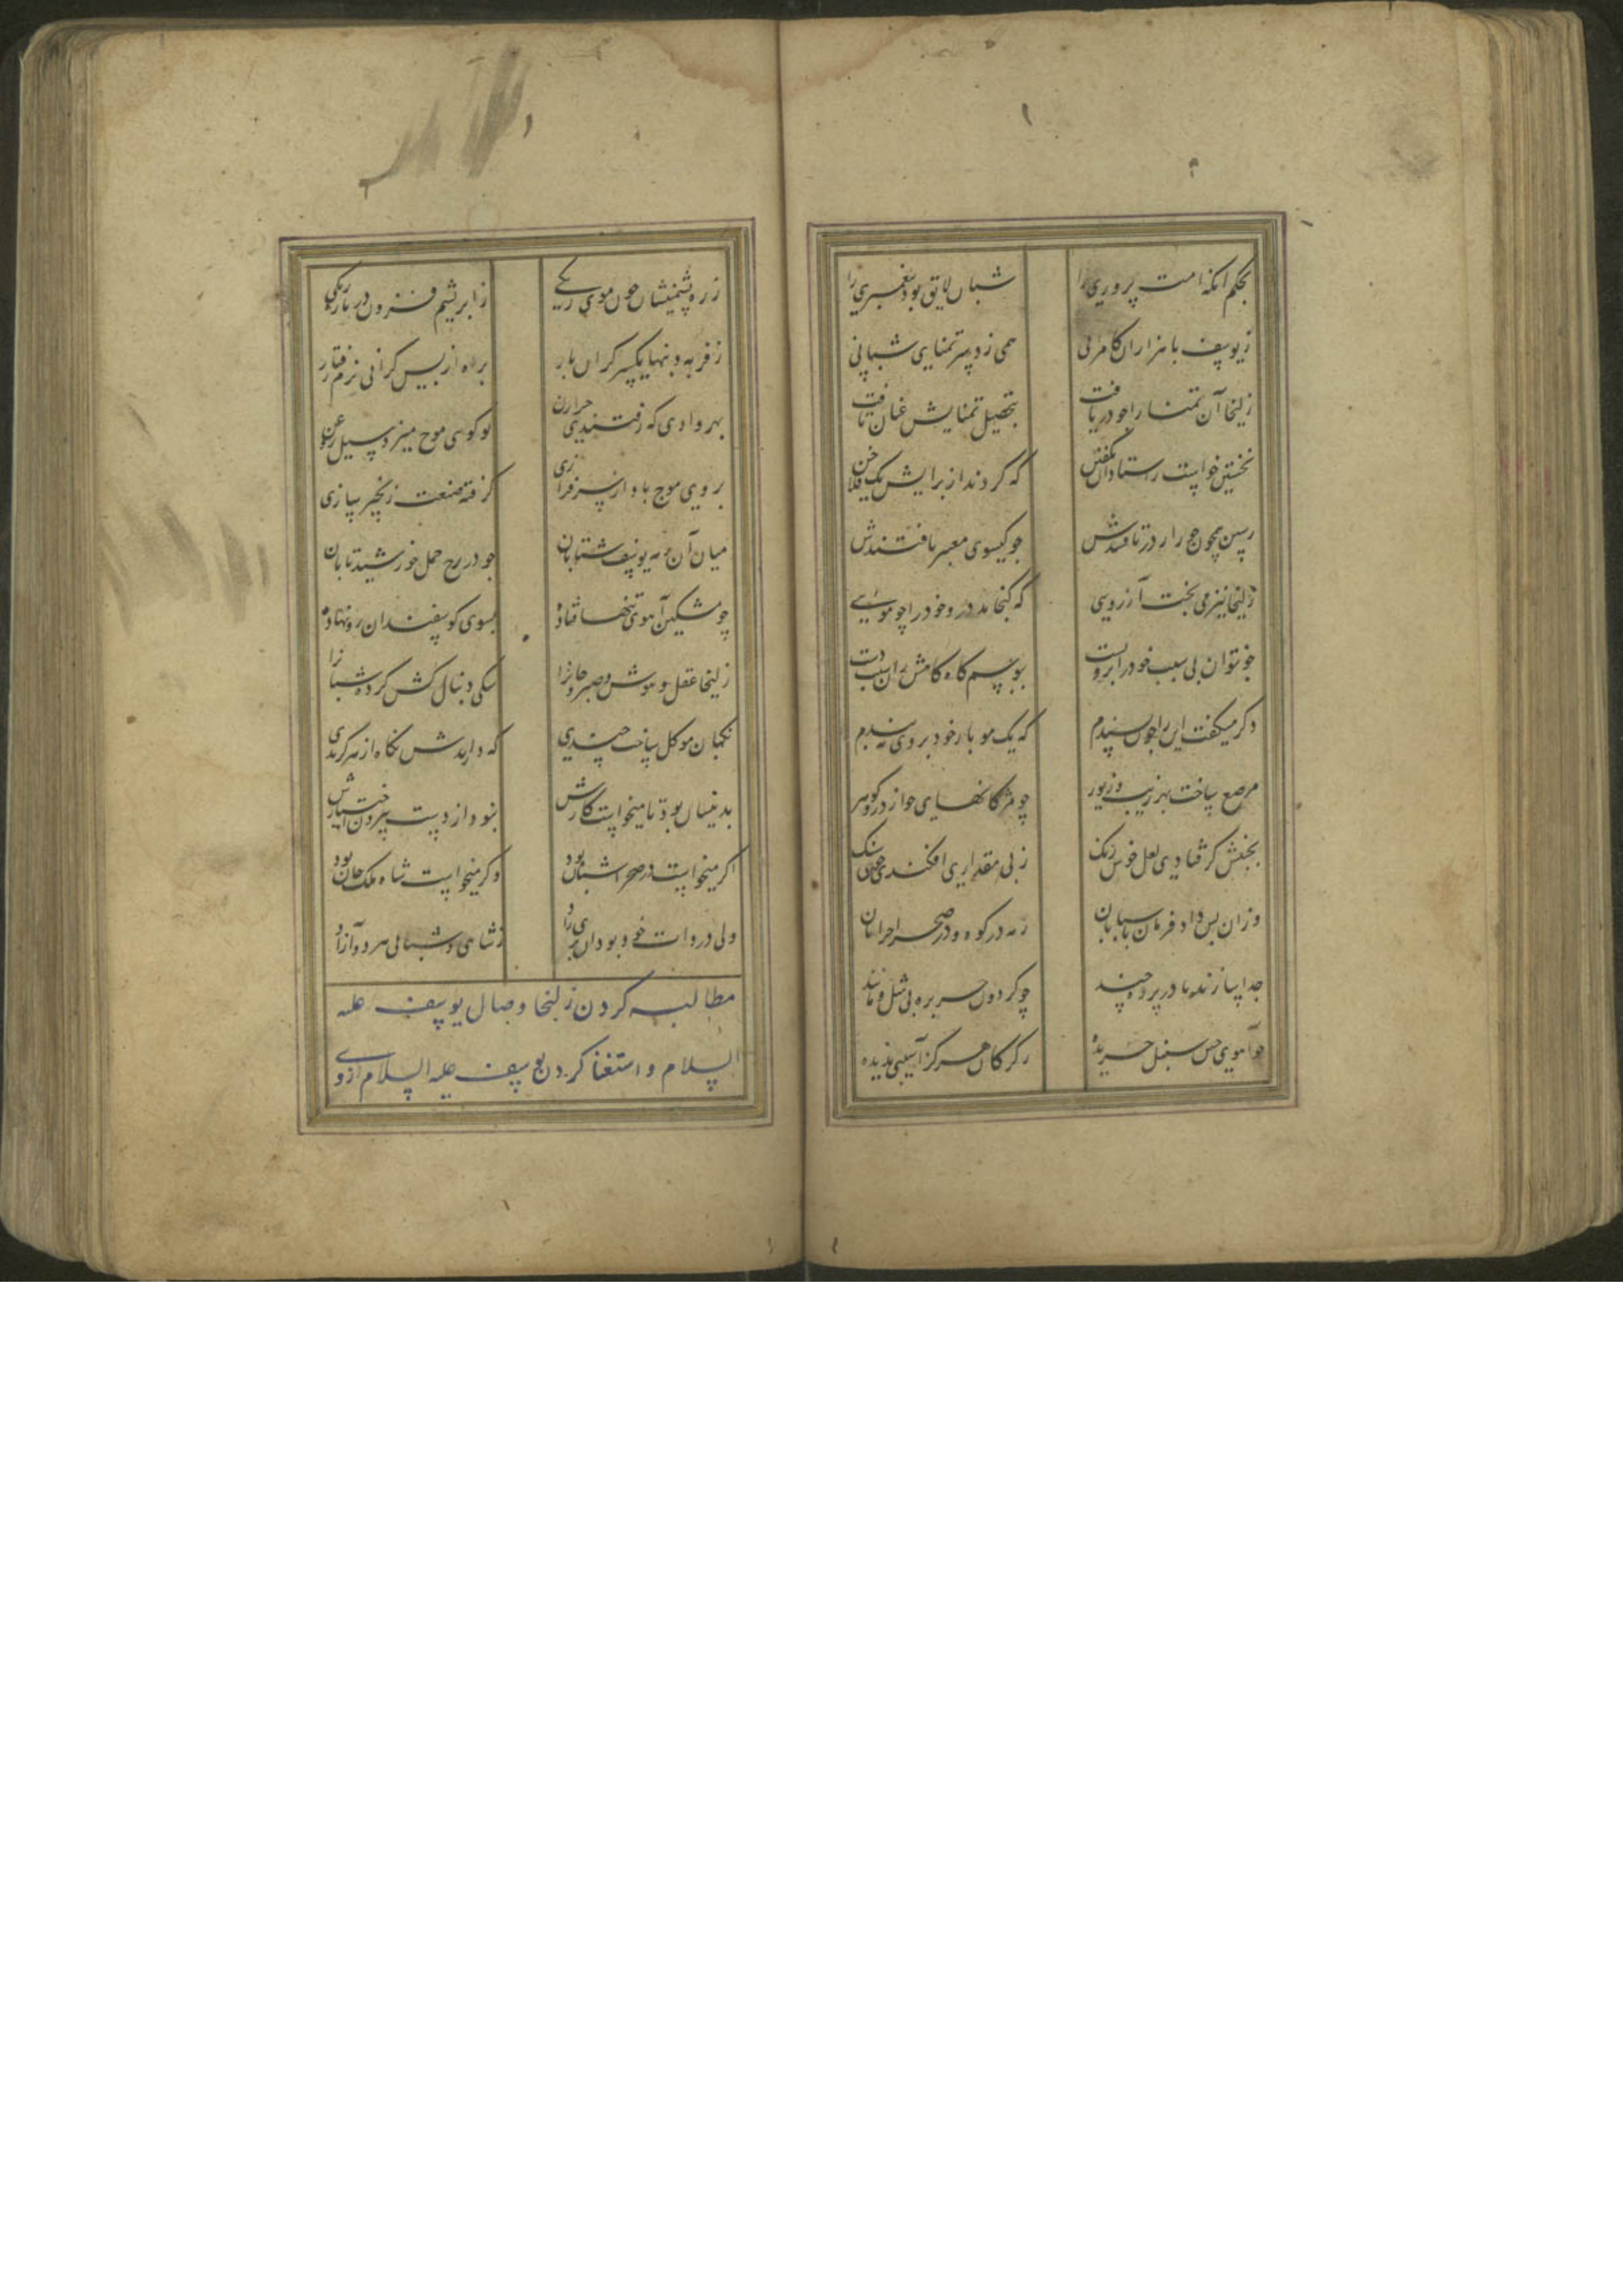 بحکم انکه امت پروری را شبان لایق بود پیغمبری را
زیوسف با هزاران کامرانی همی زد سر تمنای شبانی
زلیخا آن تمنا را چو دریافت بتحصیل تمنایش عنان تافت
نخستین خواست ز استادان که کردند از برایش یک فلاخن
رسن همچون خور از زر تافتندش چو کیسوی معنبر بافتندش
زلیخا نیز می بخت آرزویی که کنجاند درو خود را چو مویی
چو نتوان بی سبب خود را برو بست ببوسم کاه کاهش زان سبب دست
دکر میکفت این را چون پسندم که یک مو بار خود بر وی نه بندم
مرصع ساخت بهر زیب و زیور چو مژکانهای خود از در و کوهر
بجنبش کر فتادی لعل خوش رنک ز بی مقداری افکندی چون سنک
وزان پس داد فرمان با شبانان رمه در کوه و در صحرا چرانان
جدا سازند نادر بره چند چو کردون بره بی مثل و مانند
چو آهوی ختن سنبل چریده ز کرکان هرکز آسیبی ندیده
زره پشمینشان چون موی زنکی ز ابریشم فزون در تازه رنکی
ز فربه دنبها یکسر کران بار براه از بس کرانی نرم رفتار
بهر وادی که رفتندی چران تو کویی موج میزد سیل روغن
بروی موج باد از سرفرازی کرفته صنعت زنجیر سازی
میان آن رمه یوسف شتابان چو در برج حمل خورشید تابان
چو مشکین آهوی تنها فتاده بسوی کوسفندان رو نهاده
زلیخا عقل و هوش و صبر و جانرا سکی دنبال کش کرده شبانرا
نکهبان موکل ساخت چندی که دارندش نکاه از هر کزندی
بدینسان بود تا میخواست کارش نبود از دست بیرون اختیارش
اکر میخواست در صحرا شبان بود وکر میخواست شاه ملک جان بود
ولی در ذات خود بود آن پری زاد ز شاهی و شبانی هر دو آزاد
مطالبه کردن زلیخا وصال یوسف علیه
السلام و استغنا کردن یوسف علیه السلام از وی